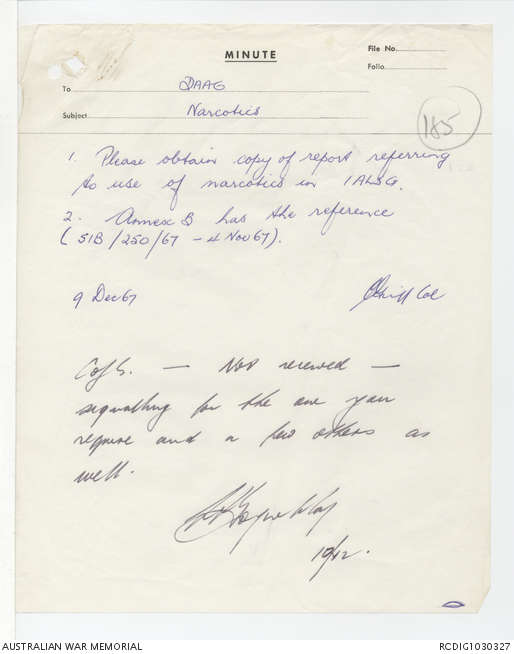 MINUTE
File No.
Folio
To DAAG
Subject Narcotics
185
1. Please obtain copy of report referring
to use of narcotics in 1 ALSG.
2. Annex B has the reference
(SIB/250/67 - 4 Nov 67).
9 Dec 67 Col
C of S. — Not received —
signalling for the one you
require and a few others as
well.
10/12.
AUSTRALIAN WAR MEMORIAL
RCDIG1030327